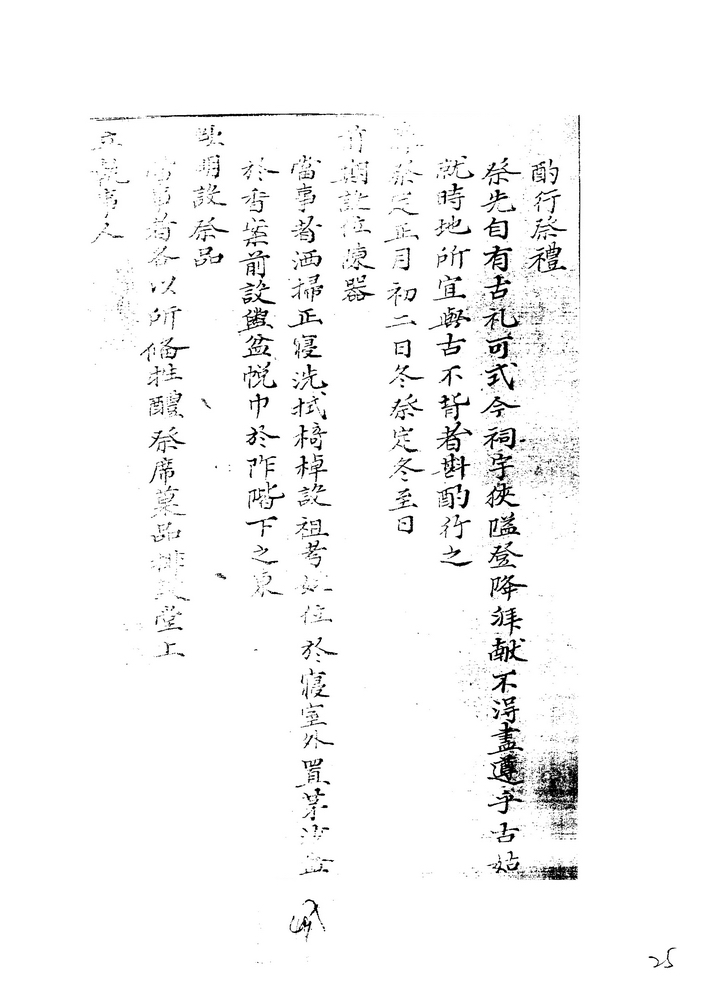 酌行祭禮
祭先自有古礼可式今祠宇狹隘登降拜献不得盡遵乎古姑
就時地所宜與古不背者斟酌行之
春祭定正月初二日冬祭定冬至日
前期設位陳器
當事者洒掃正寢洗拭椅棹設祖考妣位於寢室外置茅沙盆
於香案前設盥盆帨巾於阼階下之東
厥明設祭品
當事者各以所俻牲醴祭席菓品排設堂上
立執事人
25